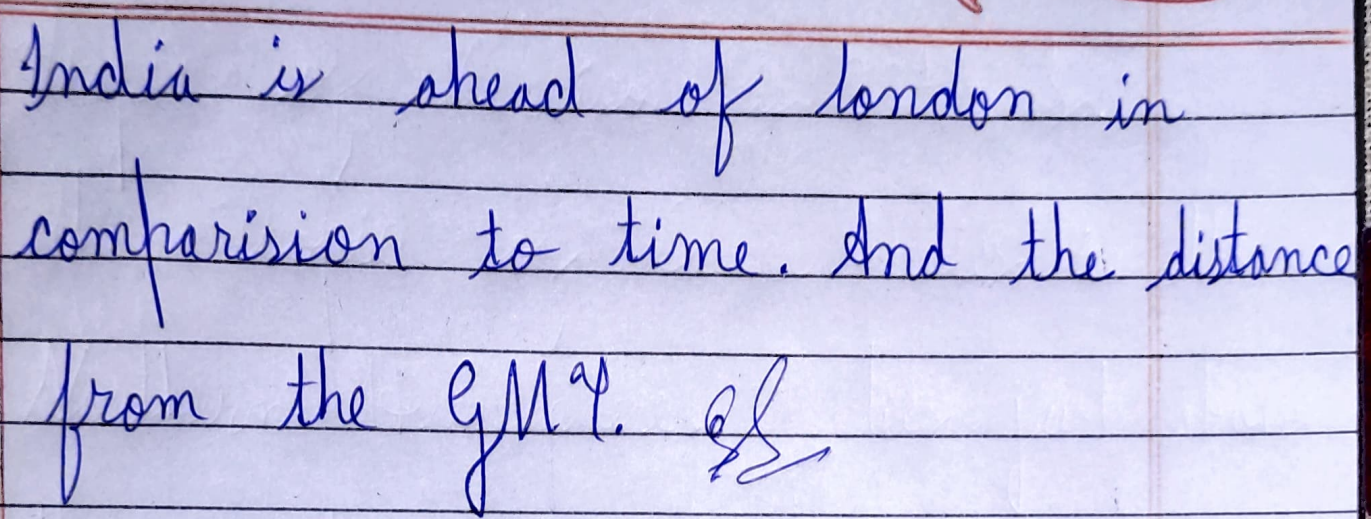 India is ahead of london in
comparision to time. And the distance
from the GMT.